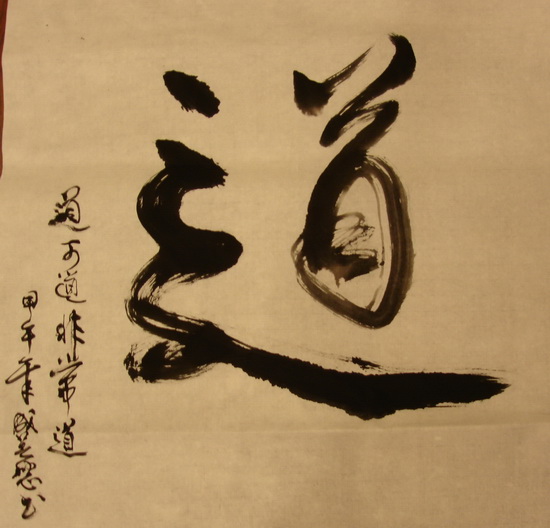 道
道可道非常道
甲午年
书